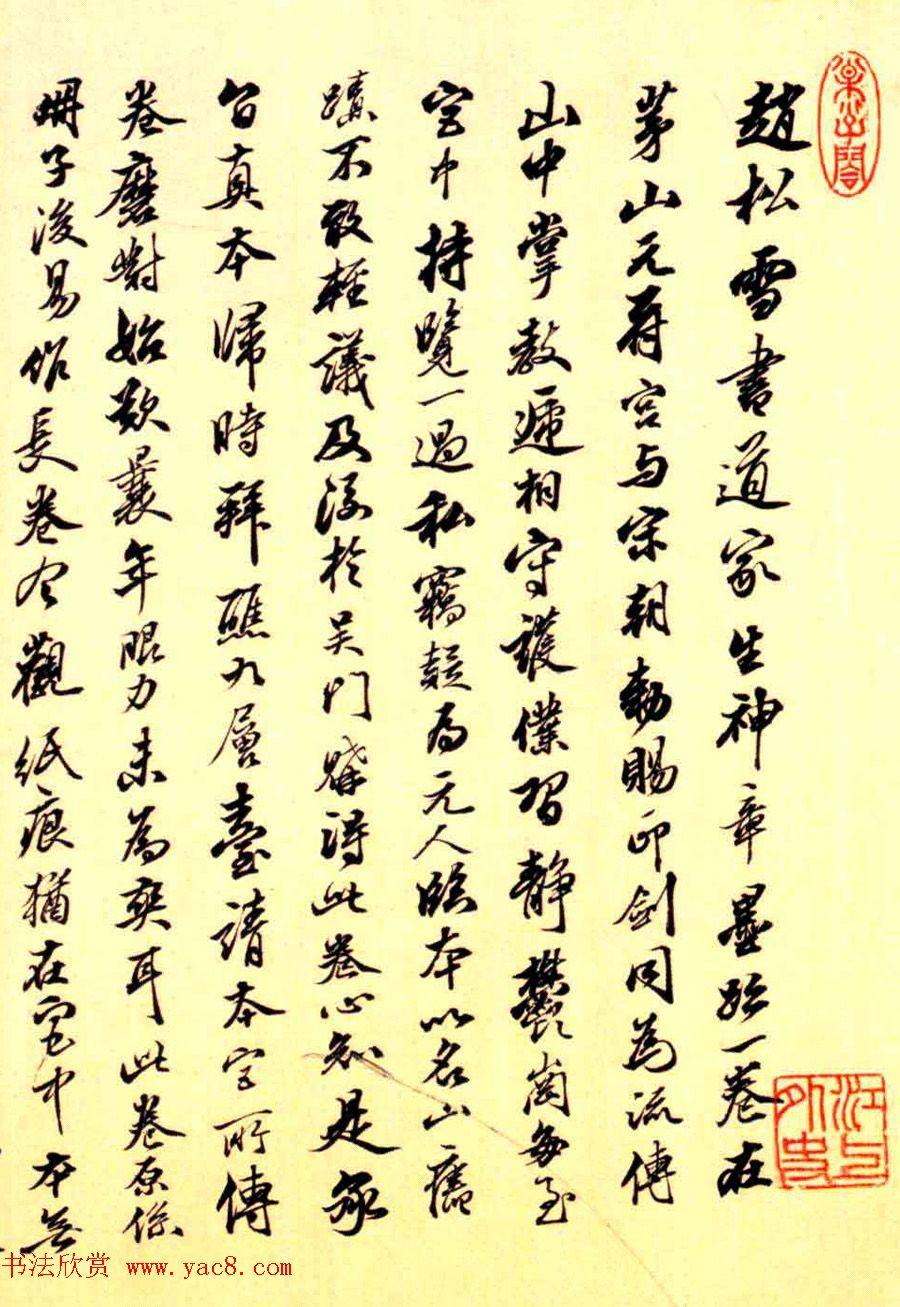 趙松雪書道家生神章墨跡一卷在
茅山元符宮与宋朝勅賜印劍同為流傳
山中掌教遞相守護僕習靜鬱岡每至
宮中持覽一過私竊疑為元人臨本以名山舊
蹟不敢輕議及後於吳門購得此卷心知是承
旨真本歸時拜醮九層臺請本宮所傳
卷磨對始歎曩年眼力未為爽耳此卷原係
冊子後易作長卷今觀紙痕猶在宮中本無
江上外史
书法欣赏 www.yac8.com